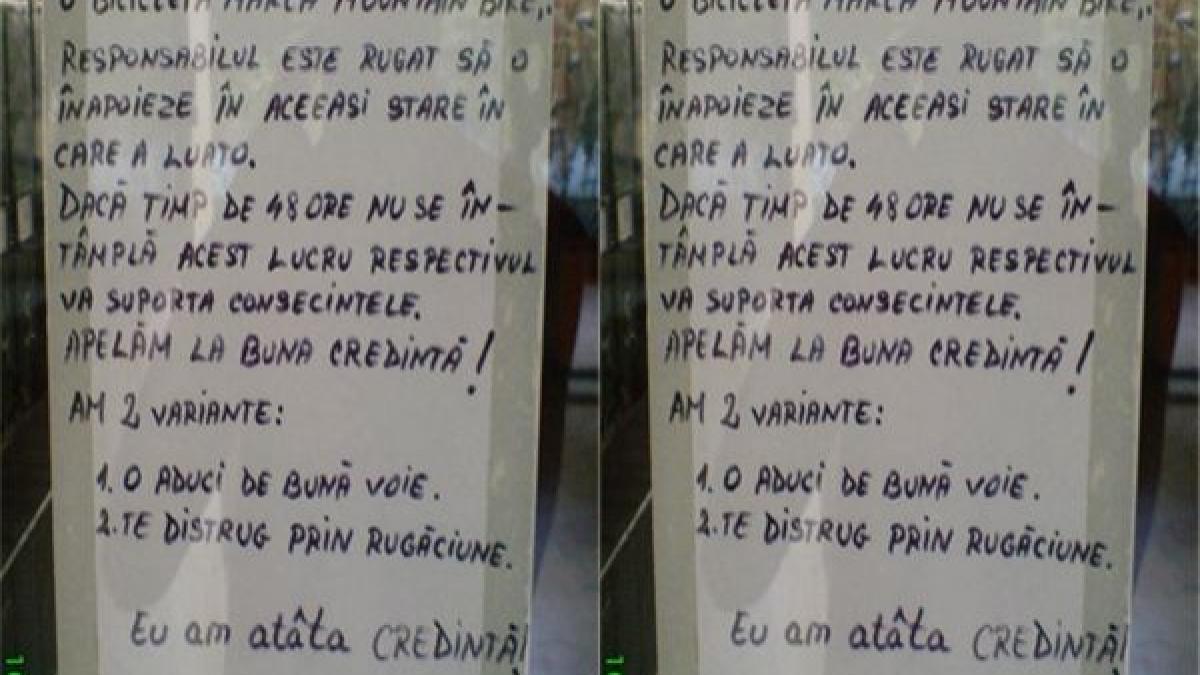 O BICICLETĂ MARCA MOUNTAIN BIKE,.
RESPONSABILUL ESTE RUGAT SĂ O
ÎNAPOIEZE ÎN ACEEASI STARE ÎN
CARE A LUATO.
DACĂ TIMP DE 48 ORE NU SE ÎN-
TÂMPLĂ ACEST LUCRU RESPECTIVUL
VA SUPORTA CONSECINTELE.
APELĂM LA BUNA CREDINTĂ!
AM 2 VARIANTE:
1. O ADUCI DE BUNĂ VOIE.
2. TE DISTRUG PRIN RUGĂCIUNE.
Eu am atâta CREDINTĂ!
O BICICLETĂ MARCA MOUNTAIN BIKE,.
RESPONSABILUL ESTE RUGAT SĂ O
ÎNAPOIEZE ÎN ACEEASI STARE ÎN
CARE A LUATO.
DACĂ TIMP DE 48 ORE NU SE ÎN-
TÂMPLĂ ACEST LUCRU RESPECTIVUL
VA SUPORTA CONSECINTELE.
APELĂM LA BUNA CREDINTĂ!
AM 2 VARIANTE:
1. O ADUCI DE BUNĂ VOIE.
2. TE DISTRUG PRIN RUGĂCIUNE.
Eu am atâta CREDINTĂ!